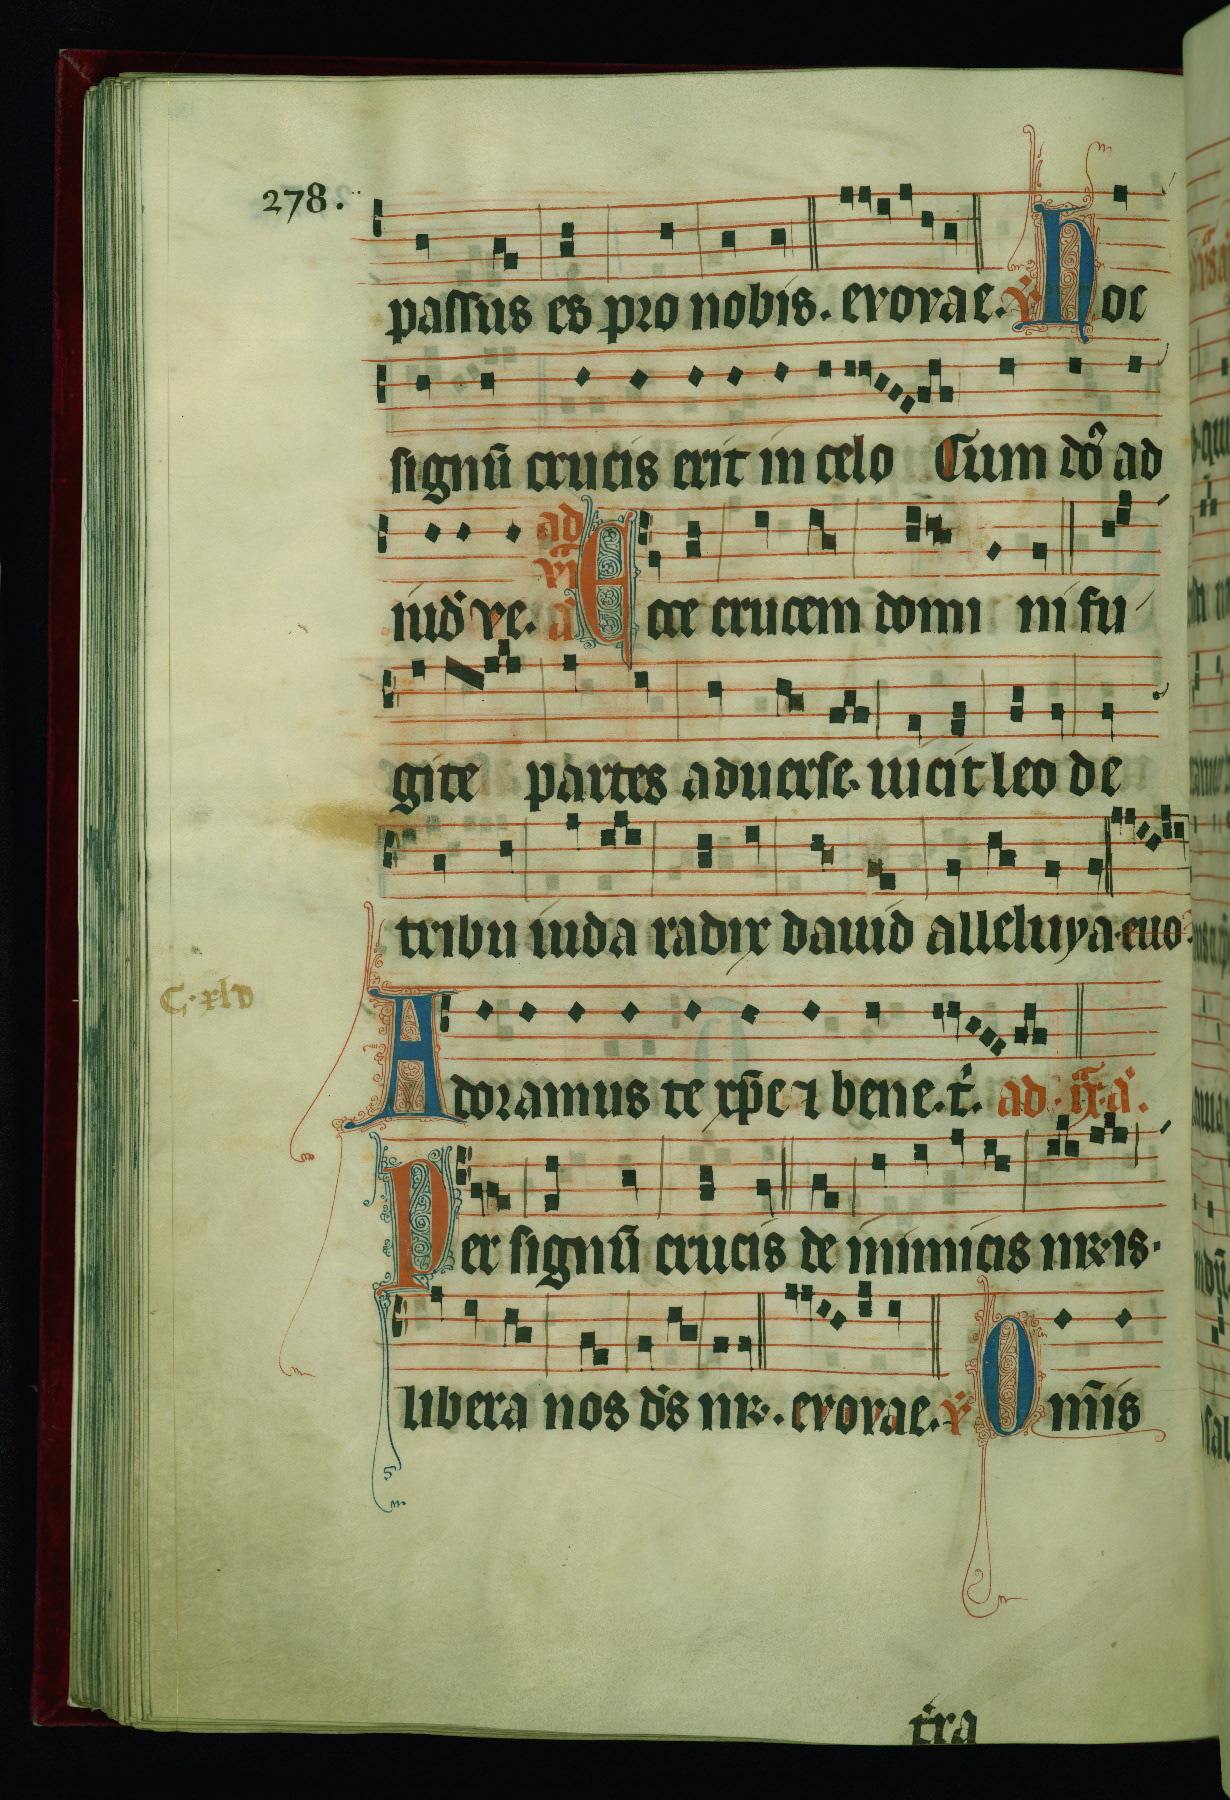 278.
passus es pro nobis. evovae. ℣ hoc
signū crucis erit in celo Cum dō ad
iud̄ ve. ad vi a Ecce crucem domi ni fu
gite partes aduerse. uicit leo de
tribu iuda radix dauid alleluya. euo
C. xld
Adoramus te xp̄e ⁊ bene. t̄. ad. ix. a.
Per signū crucis de inimicis nr̄is.
libera nos d̄s nr̄. evovae. ℣ Om̄is
t̄ra